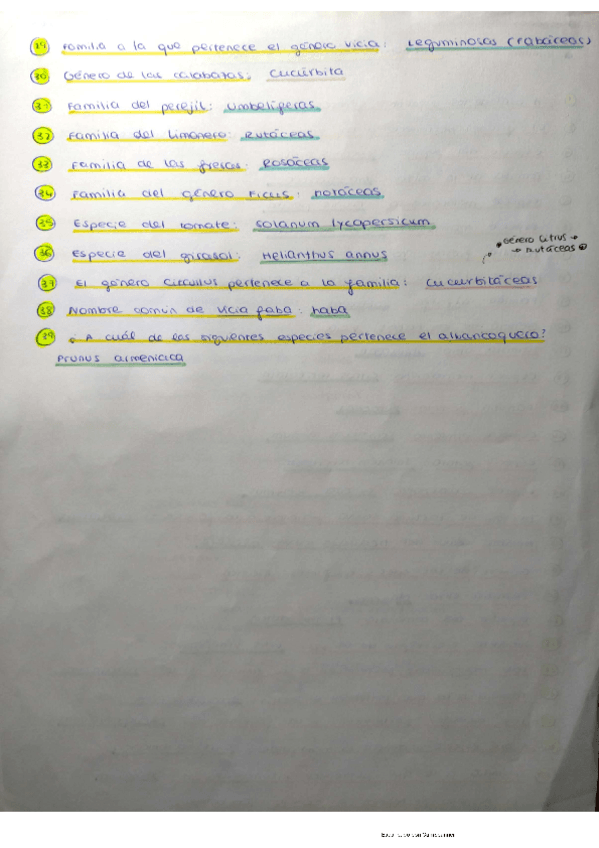 29 Familia a la que pertenece el género vicia: Leguminosas (Fabáceas)
30 Género de las calabazas: Cucúrbita
31 Familia del perejil: Umbelíferas
32 Familia del limonero: Rutáceas
33 Familia de las fresas: Rosáceas
34 Familia del género Ficus: Moráceas
35 Especie del tomate: Solanum lycopersicum
36 Especie del girasol: Helianthus annus
• Género Citrus →
→ Rutáceas
37 El género Citrullus pertenece a la familia: Cucurbitáceas
38 Nombre común de vicia faba: haba
39 ¿A cuál de las siguientes especies pertenece el albaricoquero?
Prunus armeniaca